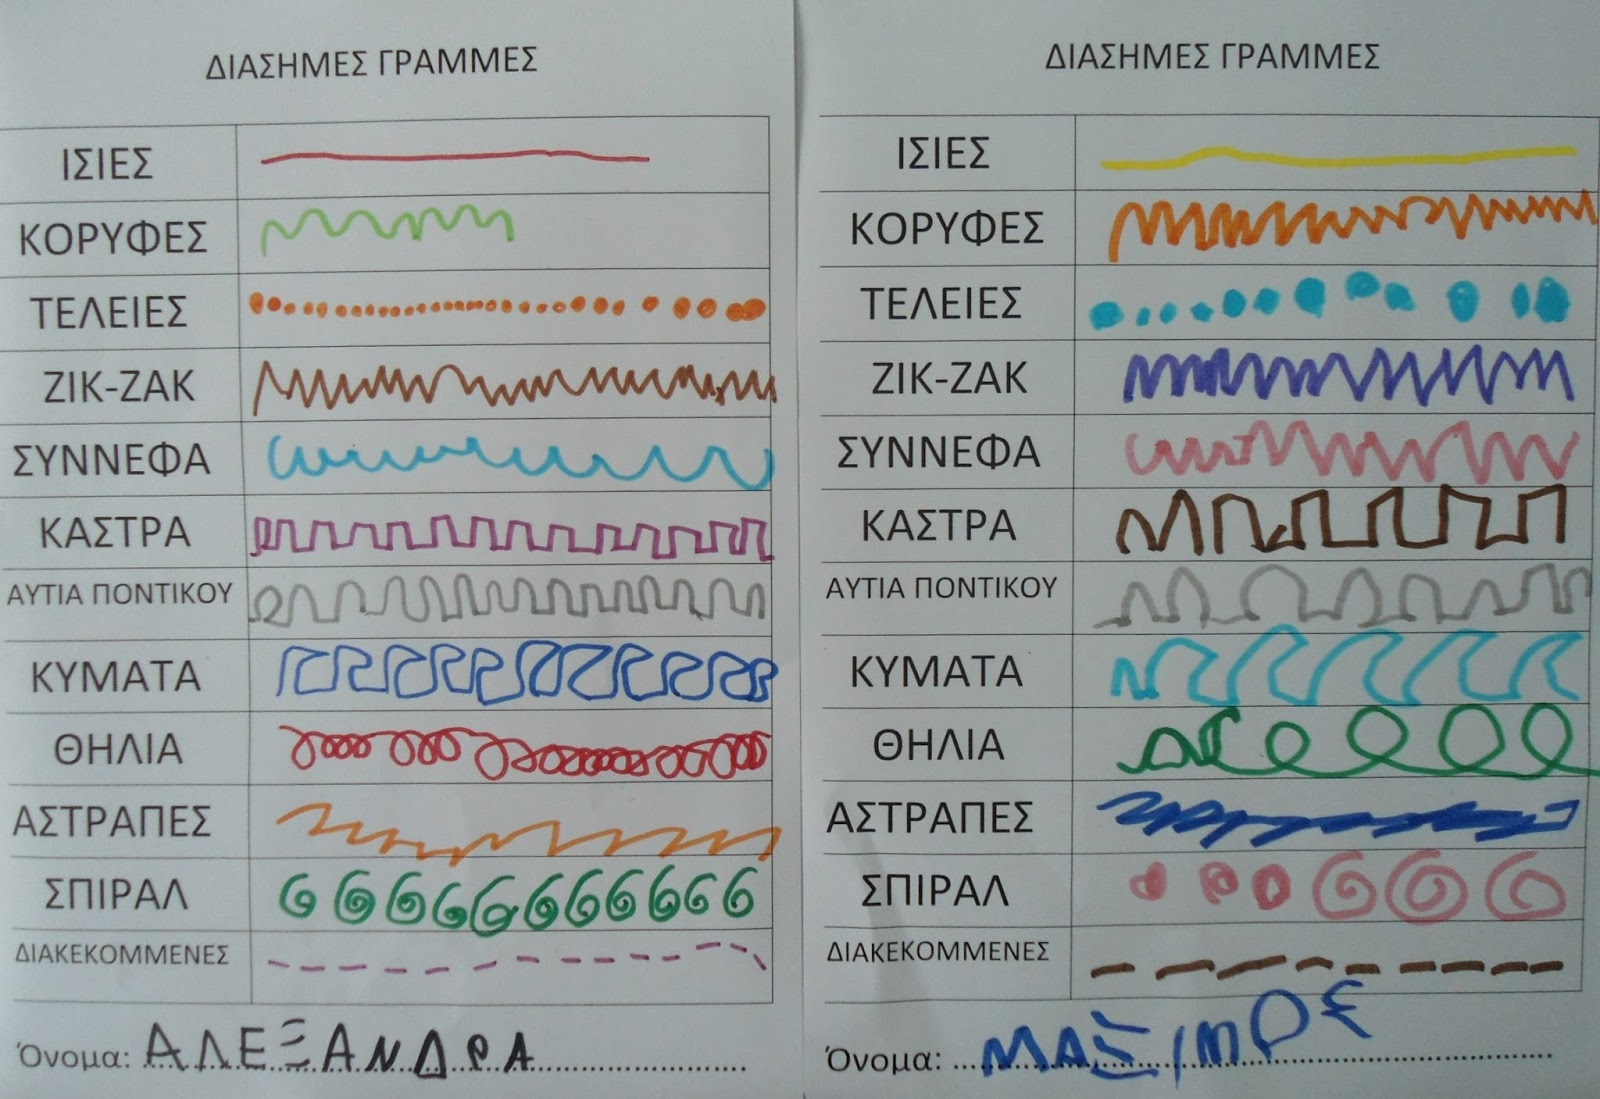 ΔΙΑΣΗΜΕΣ ΓΡΑΜΜΕΣ
ΙΣΙΕΣ
ΚΟΡΥΦΕΣ
ΤΕΛΕΙΕΣ
ΖΙΚ-ΖΑΚ
ΣΥΝΝΕΦΑ
ΚΑΣΤΡΑ
ΑΥΤΙΑ ΠΟΝΤΙΚΟΥ
ΚΥΜΑΤΑ
ΘΗΛΙΑ
ΑΣΤΡΑΠΕΣ
ΣΠΙΡΑΛ
ΔΙΑΚΕΚΟΜΜΕΝΕΣ
Όνομα: ΑΛΕΞΑΝΔΡΑ
ΔΙΑΣΗΜΕΣ ΓΡΑΜΜΕΣ
ΙΣΙΕΣ
ΚΟΡΥΦΕΣ
ΤΕΛΕΙΕΣ
ΖΙΚ-ΖΑΚ
ΣΥΝΝΕΦΑ
ΚΑΣΤΡΑ
ΑΥΤΙΑ ΠΟΝΤΙΚΟΥ
ΚΥΜΑΤΑ
ΘΗΛΙΑ
ΑΣΤΡΑΠΕΣ
ΣΠΙΡΑΛ
ΔΙΑΚΕΚΟΜΜΕΝΕΣ
Όνομα: